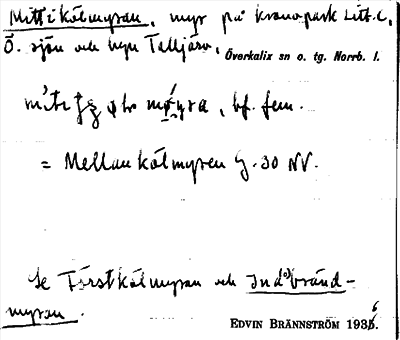 Mittikölmyran, myr på kronopark Litt. C,
Ö. sjön och byn Talljärv, Överkalix sn o. tg. Norrb. l.
bf. fem.
= Mellankölmyren G. 30 NV.
Se Förstkölmyran och Ind(e)bränd-
myran.
EDVIN BRÄNNSTRÖM 1936.